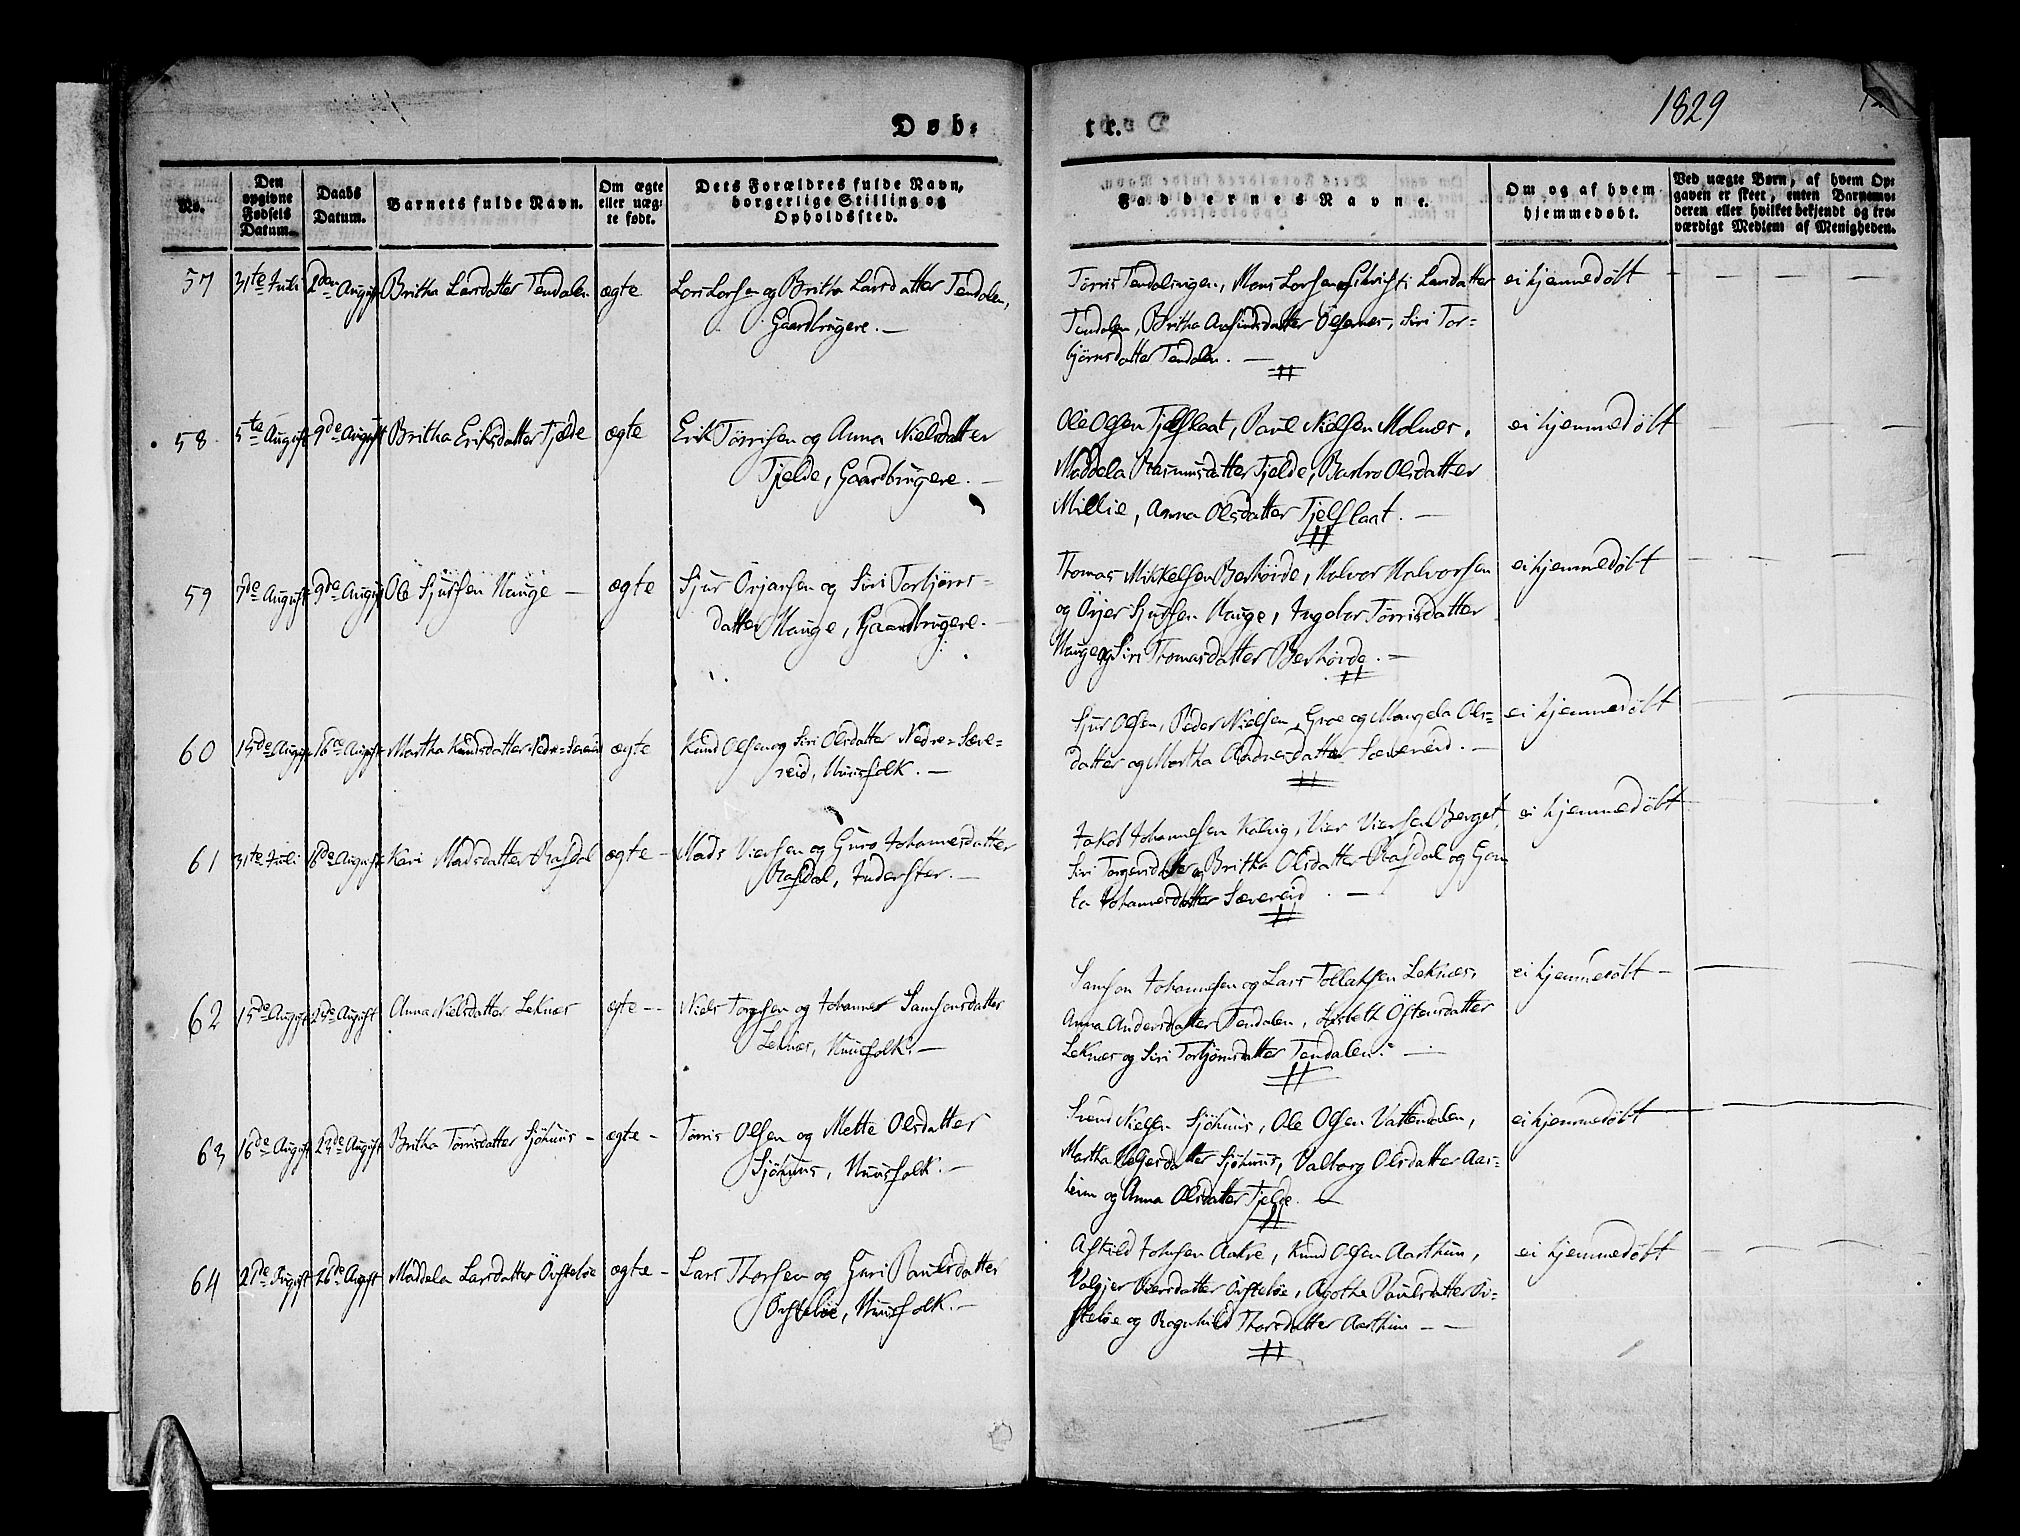 Døb-
te.
1829
No.
Den opgivne Fødsels Datum.
Daabs Datum.
Barnets fulde Navn.
Om ægte eller uæg- te født.
Dets Forældres fulde Navn, borgerlige Stilling og Opholdssted.
Faddernes Navne.
Om og af hvem hjemmedøbt.
Ved uægte Børn, af hvem Op-
gaven er skeet, enten Barnemo-
deren eller hvilket bekjendt og tro-
værdigt Medlem af Menigheden.
57 31te Juli 2den August Britha Larsdatter Tendalen ægte
Lars Larsen og Britha Larsdatter Tendalen,
Gaardbrugere. —
Torris Tendalingen, Mons Larsen Christi Larsdatter
Tendalen, Britha Øfsernes, Siri Tor-
bjørnsdatter Tendalen. —
ei hjemmedøbt
58. 5te August 9de August Britha Eriksdatter Tjelde ægte
Erik Törrisen og Anna Nielsdatter
Tjelde, Gaardbrugere. —
Ole Olsen Tjelflaat, Paul Nielsen Molnæs,
Maddela Rasmusdatter Tjelde, Barbro Olsdatter
Millie, Anna Olsdatter Tjelflaat. —
ei hjemmedøbt
59 7de August 9de August Ole Sjursen Hauge — ægte
Sjur Örjansen og Siri Torbjörns-
datter Hauge, Gaardbrugere.
Thomas Mikkelsen Berhövde, Halvor Halvorsen
og Örjer Sjursen Hauge, Ingebor Törrisdatter
Hauge og Siri Thomasdatter Berhövde. —
ei hjemmedøbt
60 15de August 16de August Martha Knudsdatter Nedre-Sævereid ægte
Knud Olsen og Siri Olsdatter Nedre-Sæve-
reid, Huusfolk. —
Sjur Olsen, Peder Nielsen, Groe og Mangela Ols-
datter og Martha Sævereid. —
ei hjemmedøbt
61 31te Juli August Kari Madsdatter Rafdal ægte —
Mads Viersen og Guro Johannesdatter
Rafdal, Inderster. —
Jakob Johannesen Kalvig, Vier Viersen Berget,
Siri Torgersdatter og Britha Olsdatter Rafdal og Gun-
la Johannesdatter Sævereid. —
ei hjemmedøbt
62 15de August 23de August Anna Nielsdatter Leknæs ægte —
Niels Torgesen og Johanne Samsonsdatter
Leknæs, Huusfolk. —
Samson Johannesen og Lars Tollaksen Leknæs,
Anna Andersdatter Tendalen, Lisbeth Östensdatter
Leknæs og Siri Torbjörnsdatter Tendalen. —
ei hjemmedøbt —
63 16de August 23de August Britha Törrisdatter Sjöhuus — ægte —
Törris Olsen og Mette Olsdatter
Sjöhuus, Huusfolk. —
Svend Nielsen Sjöhuus, Ole Olsen Vattendalen,
Martha Sjöhuus, Valborg Olsdatter Aas-
heim og Anna Olsdatter Tjelde. —
ei hjemmedøbt
64 21de August 26de August Maddela Larsdatter Övsteløe ægte —
Lars Thorsen og Guri Paulsdatter
Øvsteløe, Huusfolk. —
Askild Johnsen Aakre, Knud Olsen Aarthun,
Valgjer Viersdatter Øvsteløe, Agotha Paulsdatter Öv-
steløe og Ragnhild Thorsdatter Aarthun — —
ei hjemmedøbt